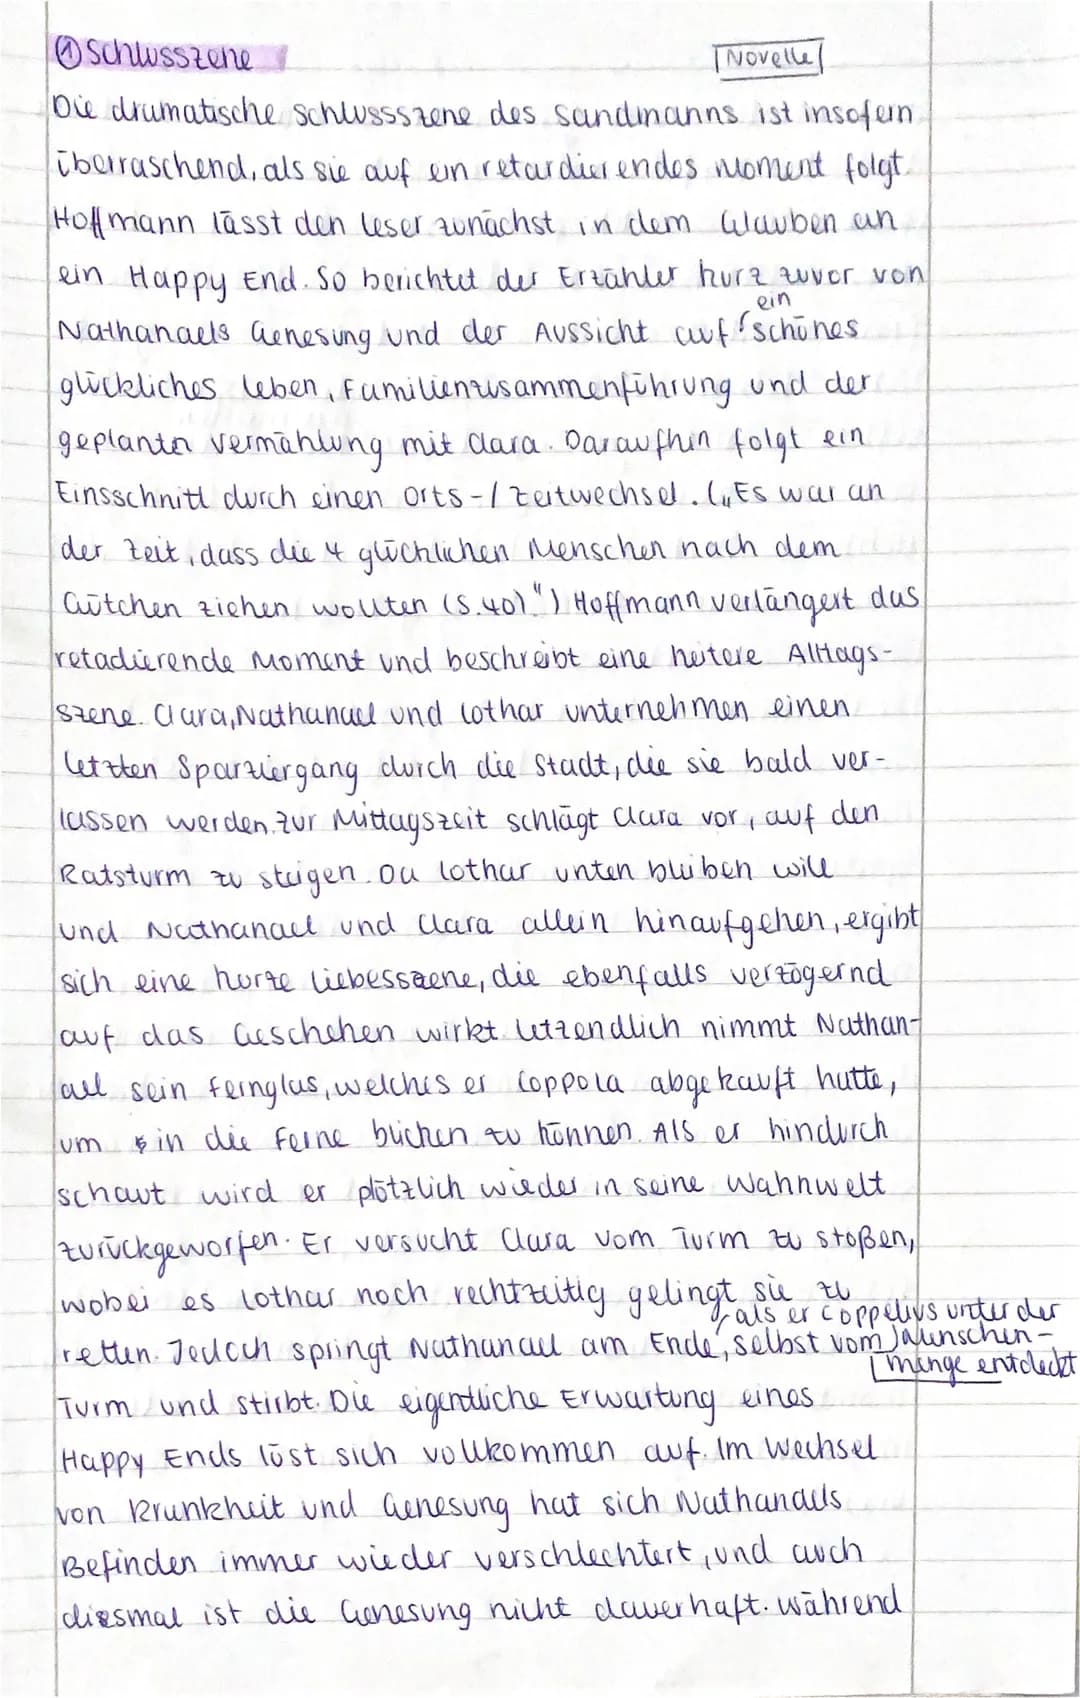 ① Schlusszene
Novelle
Die dramatische Schlussszene des Sandmanns ist insofern
überraschend, als sie auf ein retardierendes Moment folgt.
Hoffmann lässt den Leser zunächst in dem Glauben an
ein Happy End. So berichtet der Erzähler kurz zuvor von
ein
Nathanaels Genesung und der Aussicht auf schönes
glückliches Leben, Familienzusammenführung und der
geplantn Vermählung mit Clara. Daraufhin folgt ein
Einsschnitt durch einen Orts-/Zeitwechsel. („Es war an
der Zeit, dass die 4 glücklichen Menschen nach dem
Gütchen ziehen wollten (S.40)") Hoffmann verlängert das
retadierende Moment und beschreibt eine heitere Alltags-
szene. Clara, Nathanael und Lothar unternehmen einen
letzten Sparziergang durch die Stadt, die sie bald ver-
lassen werden. Zur Mittagszeit schlägt Clara vor, auf den
Ratsturm zu steigen. Da Lothar unten bleiben will
und Nathanael und Clara allein hinaufgehen, ergibt
sich eine kurze Liebesszene, die ebenfalls verzögernd
auf das Geschehen wirkt. Letzendlich nimmt Nathan-
ael sein Fernglas, welches er Coppola abgekauft hatte,
um in die Ferne blicken zu können. Als er hindurch
schaut wird er plötzlich wieder in seine Wahnwelt
zurückgeworfen. Er versucht Clara vom Turm zu stoßen,
wobei es Lothar noch rechtzeitig gelingt sie zu
als er Coppelius unter der
retten. Jedoch springt Nathanael am Ende, selbst vom Menschen-
menge entdeckt
Turm und stirbt. Die eigentliche Erwartung eines
Happy Ends löst sich vollkommen auf. Im Wechsel
von Krankheit und Genesung hat sich Nathanaels
Befinden immer wieder verschlechtert, und auch
diesmal ist die Genesung nicht dauerhaft. Während